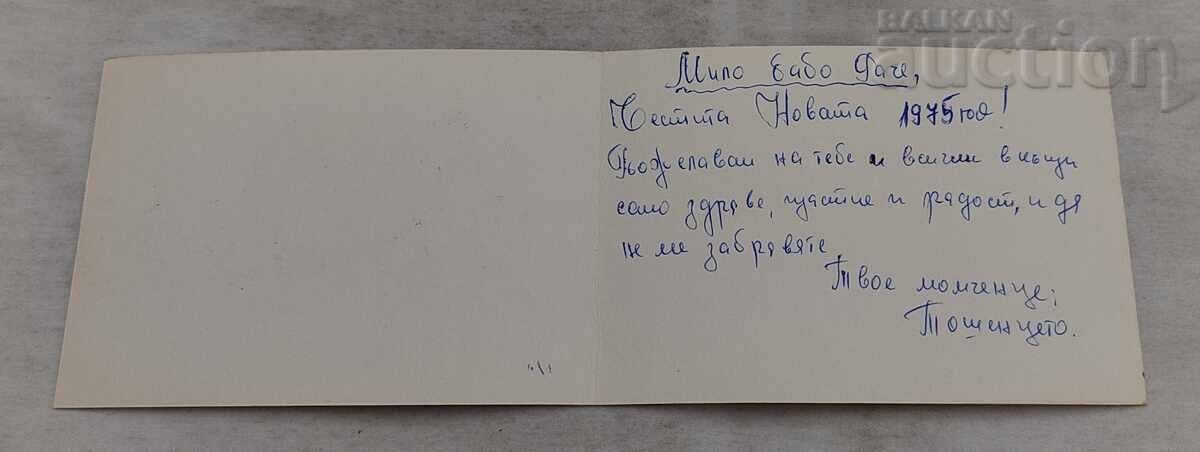 BALKAN
auction
Мило бабо Даче,
Честита Новата 1975 год!
Пожелавам на тебе и всички в къщи
само здраве, щастие и радост, и да
не ме забравяте.
Твое момченце:
Тошенцето.